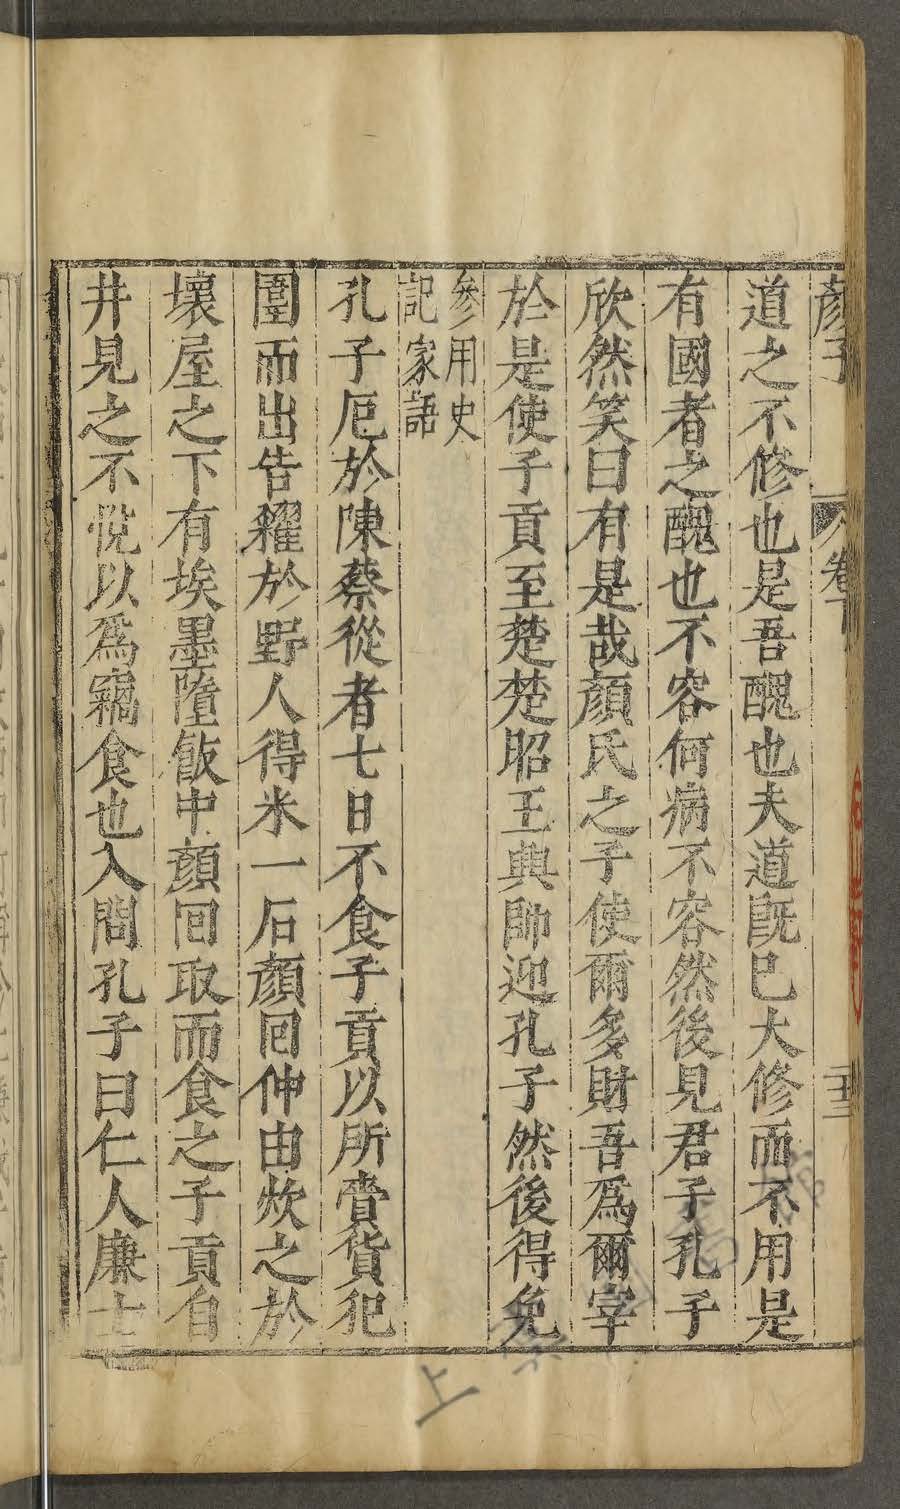 顔子 卷下 二十三
道之不修也是吾醜也夫道旣已大修而不用是
有國者之醜也不容何病不容然後見君子孔子
欣然笑曰有是哉顔氏之子使爾多財吾爲爾宰
於是使子貢至楚楚昭王興師迎孔子然後得免
參用史
記家語
孔子厄於陳蔡從者七日不食子貢以所賫貨犯
圍而出告糴於野人得米一石顔回仲由炊之於
壞屋之下有埃墨墮飯中顔回取而食之子貢自
井見之不悅以爲竊食也入問孔子曰仁人廉士